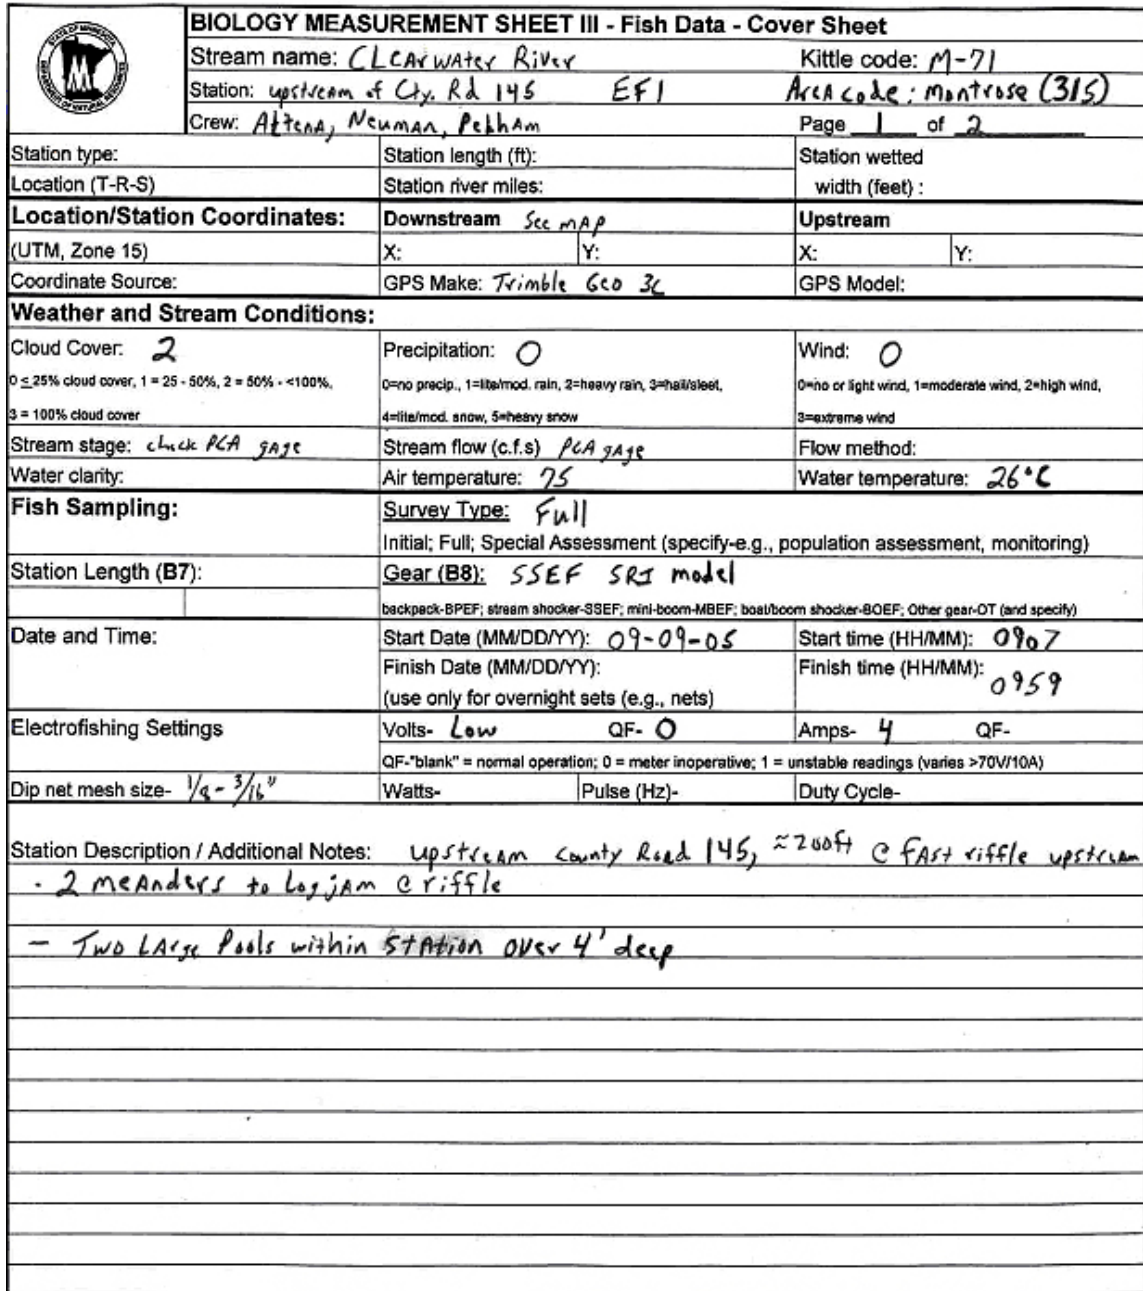 BIOLOGY MEASUREMENT SHEET III - Fish Data - Cover Sheet
Stream name: CLearwater River Kittle code: M-71
Station: upstream of Cty. Rd 145 EF1 Area code: Montrose (315)
Crew: Altena, Neuman, Pelham Page 1 of 2
Station type: Station length (ft): Station wetted
Location (T-R-S) Station river miles: width (feet) :
Location/Station Coordinates: Downstream See map Upstream
(UTM, Zone 15) X: Y: X: Y:
Coordinate Source: GPS Make: Trimble Geo 3c GPS Model:
Weather and Stream Conditions:
Cloud Cover: 2 Precipitation: 0 Wind: 0
0 ≤ 25% cloud cover, 1 = 25 - 50%, 2 = 50% - <100%, 0=no precip., 1=lite/mod. rain, 2=heavy rain, 3=hail/sleet, 0=no or light wind, 1=moderate wind, 2=high wind,
3 = 100% cloud cover 4=lite/mod. snow, 5=heavy snow 3=extreme wind
Stream stage: check PCA gage Stream flow (c.f.s) PCA gage Flow method:
Water clarity: Air temperature: 75 Water temperature: 26°C
Fish Sampling: Survey Type: Full
Initial; Full; Special Assessment (specify-e.g., population assessment, monitoring)
Station Length (B7): Gear (B8): SSEF SRI model
backpack-BPEF; stream shocker-SSEF; mini-boom-MBEF; boat/boom shocker-BOEF; Other gear-OT (and specify)
Date and Time: Start Date (MM/DD/YY): 09-09-05 Start time (HH/MM): 0907
Finish Date (MM/DD/YY): Finish time (HH/MM): 0959
(use only for overnight sets (e.g., nets)
Electrofishing Settings Volts- Low QF- 0 Amps- 4 QF-
QF-"blank" = normal operation; 0 = meter inoperative; 1 = unstable readings (varies >70V/10A)
Dip net mesh size- 1/8 - 3/16" Watts- Pulse (Hz)- Duty Cycle-
Station Description / Additional Notes: upstream county Road 145, ≈200ft @ fast riffle upstream
· 2 meanders to Logjam @ riffle
- Two Large Pools within Station over 4' deep